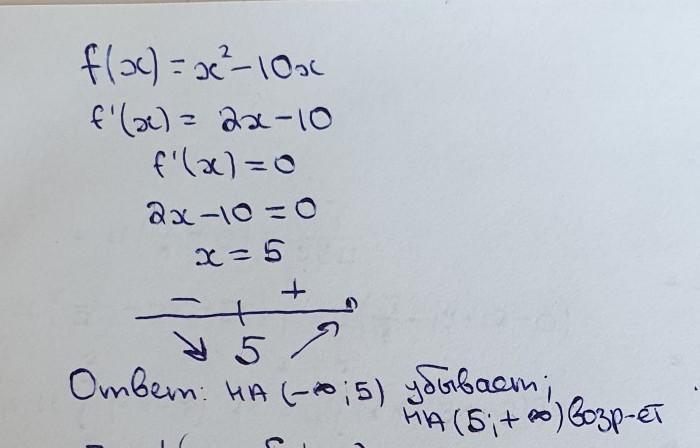 f(x) = x² – 10x
f'(x) = 2x – 10
f'(x) = 0
2x – 10 = 0
x = 5
– +
5
Ответ: на (–∞; 5) убывает;
на (5; +∞) возр-ет